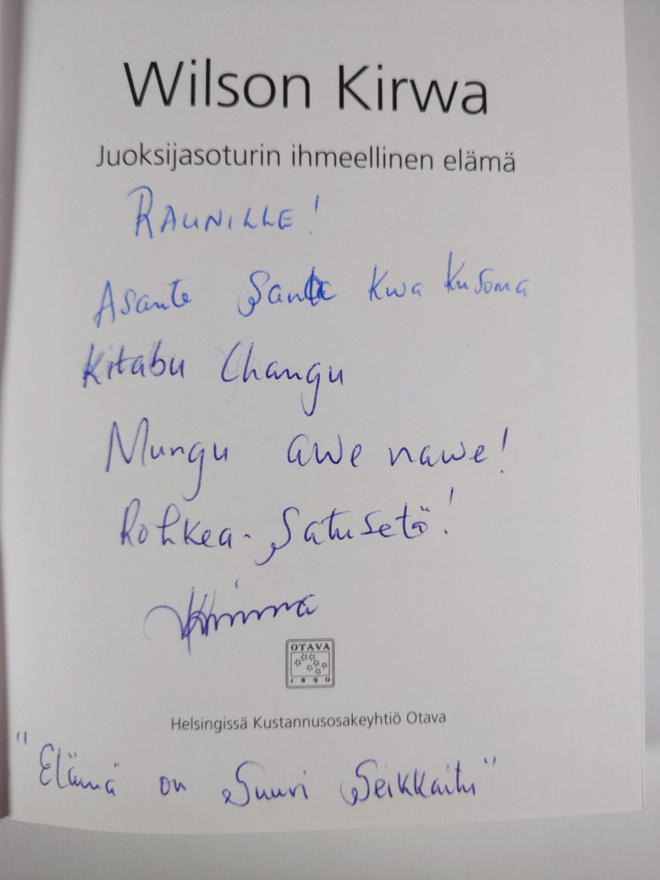 Wilson Kirwa
Juoksijasoturin ihmeellinen elämä
RAUNILLE!
Asante Sante Kwa Kusoma
Kitabu Changu
Mungu awe nawe!
Rohkea-Satusetä!
OTAVA
1890
Helsingissä Kustannusosakeyhtiö Otava
"Elämä on Suuri Seikkailu"